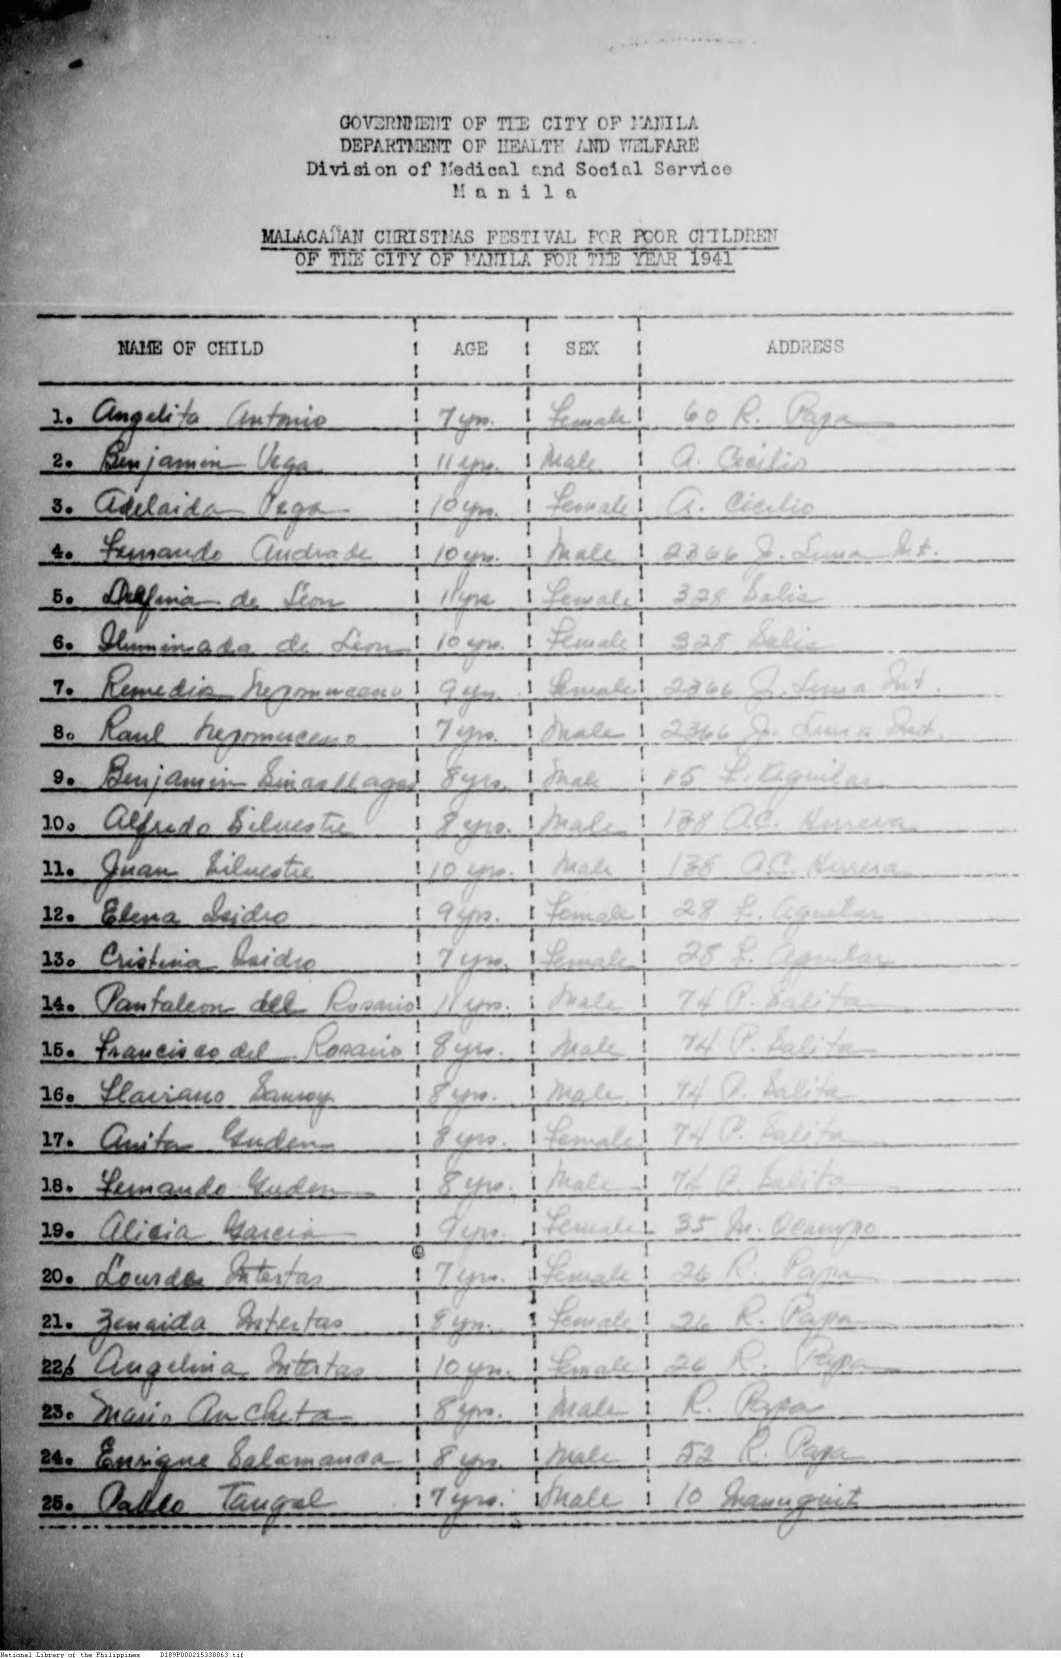 GOVERNMENT OF THE CITY OF MANILA
DEPARTMENT OF HEALTH AND WELFARE
Division of Medical and Social Service
M a n i l a
MALACAÑAN CHRISTMAS FESTIVAL FOR POOR CHILDREN
OF THE CITY OF MANILA FOR THE YEAR 1941
NAME OF CHILD AGE SEX ADDRESS
1. Angelita Antonio 7 yrs. Female 60 R. Papa
2. Benjamin Vega 11 yrs. Male A. Cecilio
3. Adelaida Vega 10 yrs. Female A. Cecilio
4. Fernando Andrade 10 yrs. Male 2366 J. Luna Int.
5. Delfina de Leon 11 yrs Female 328 Solis
6. Iluminada de Leon 10 yrs. Female 328 Solis
7. Remedis Nepomuceno 9 yrs. Female 2366 J. Luna Int.
8. Raul Nepomuceno 7 yrs. Male 2366 J. Luna Int.
9. Benjamin 8 yrs. Male 15 F. Aguilar
10. Alfredo Silvestre 8 yrs. Male 138 A.C. Herrera
11. Juan Silvestre 10 yrs. Male 138 A.C. Herrera
12. Elena Isidro 9 yrs. Female 28 F. Aguilar
13. Cristina Isidro 7 yrs. Female 28 F. Aguilar
14. Pantaleon del Rosario 11 yrs. Male 74 P. Salita
15. Francisco del Rosario 8 yrs. Male 74 P. Salita
16. Flaviano 8 yrs. Male 74 P. Salita
17. Anita 8 yrs. Female 74 P. Salita
18. Fernando 8 yrs. Male 74 P. Salita
19. Alicia Garcia 9 yrs. Female 35 M. Ocampo
20. Lourdes Intertas 7 yrs. Female 26 R. Papa
21. Zenaida Intertas 8 yrs. Female 26 R. Papa
22. Angelina Intertas 10 yrs. Female 26 R. Papa
23. Mario Ancheta 8 yrs. Male R. Papa
24. Enrique Salamanca 8 yrs. Male 52 R. Papa
25. Pablo Tangal 7 yrs. Male 10 Manuguit
National Library of the Philippines D189P000215338063.tif